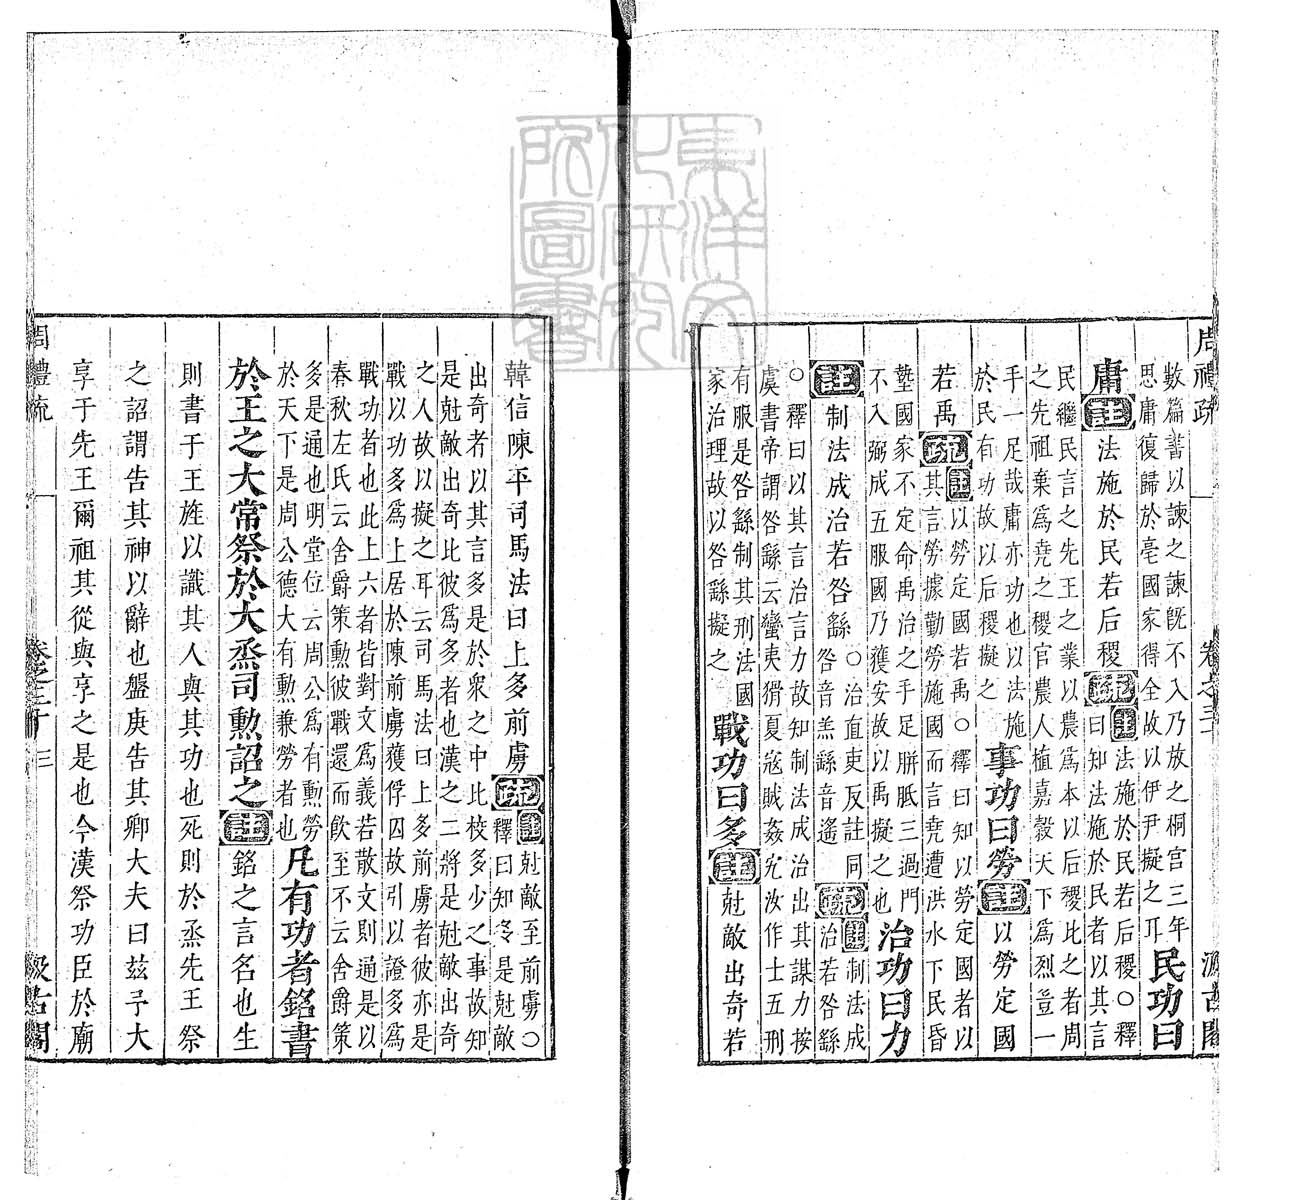 周禮疏 卷之三十 汲古閣
數篇書以諫之諫旣不入乃放之桐宮三年
思庸復歸於亳國家得全故以伊尹擬之耳民功曰
庸註法施於民若后稷疏註法施於民若后稷○釋
曰知法施於民者以其言
民繼民言之先王之業以農爲本以后稷比之者周
之先祖棄爲堯之稷官農人植嘉穀天下爲烈豈一
手一足哉庸亦功也以法施
於民有功故以后稷擬之事功曰勞註以勞定國
若禹疏註以勞定國若禹○釋曰知以勞定國者以
其言勞據勤勞施國而言堯遭洪水下民昏
墊國家不定命禹治之手足胼胝三過門
不入弼成五服國乃獲安故以禹擬之也治功曰力
註制法成治若咎繇○治直吏反註同
咎音羔繇音遙疏註制法成
治若咎繇
○釋曰以其言治言力故知制法成治出其謀力按
虞書帝謂咎繇云蠻夷猾夏寇賊姦宄汝作士五刑
有服是咎繇制其刑法國
家治理故以咎繇擬之戰功曰多註尅敵出奇若
韓信陳平司馬法曰上多前虜疏註尅敵至前虜○
釋曰知冬是尅敵
出奇者以其言多是於衆之中比校多少之事故知
是尅敵出奇比彼爲多者也漢之二將是尅敵出奇
之人故以擬之耳云司馬法曰上多前虜者彼亦是
戰以功多爲上居於陳前虜獲俘囚故引以證多爲
戰功者也此上六者皆對文爲義若散文則通是以
春秋左氏云舍爵策勳彼戰還而飲至不云舍爵策
多是通也明堂位云周公爲有勳勞
於天下是周公德大有勳兼勞者也凡有功者銘書
於王之大常祭於大烝司勳詔之註銘之言名也生
則書于王旌以識其人與其功也死則於烝先王祭
之詔謂告其神以辭也盤庚告其卿大夫曰兹予大
享于先王爾祖其從與享之是也今漢祭功臣於廟
周禮疏 卷之三十 三 汲古閣
東洋文化研究所圖書